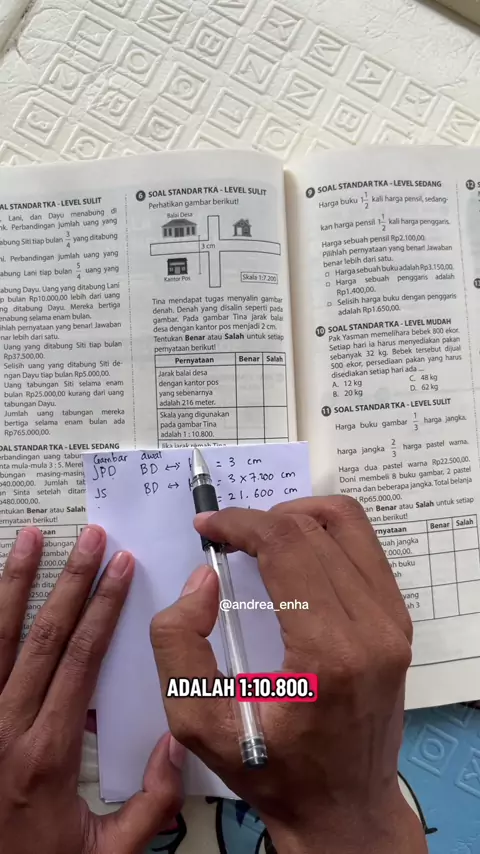 OAL STANDAR TKA - LEVEL SULIT
Lani, dan Dayu menabung di
nk. Perbandingan jumlah uang yang
abung Siti tiap bulan 3/4 yang ditabung
ni. Perbandingan jumlah uang yang
abung Lani tiap bulan 5/4 uang yang
abung Dayu. Uang yang ditabung Lani
p bulan Rp10.000,00 lebih dari uang
ng ditabung Dayu. Mereka bertiga
enabung selama enam bulan.
ihlah pernyataan yang benar! Jawaban
nar lebih dari satu.
Uang yang ditabung Siti tiap bulan
Rp37.500,00.
Selisih uang yang ditabung Siti de-
ngan Dayu tiap bulan Rp5.000,00.
Uang tabungan Siti selama enam
bulan Rp25.000,00 kurang dari uang
tabungan Dayu.
Jumlah uang tabungan mereka
bertiga selama enam bulan adalah
Rp765.000,00.
6 SOAL STANDAR TKA - LEVEL SULIT
Perhatikan gambar berikut!
Balai Desa
3 cm
Kantor Pos
Skala 1:7.200
Tina mendapat tugas menyalin gambar
denah. Denah yang disalin seperti pada
gambar. Pada gambar Tina jarak balai
desa dengan kantor pos menjadi 2 cm.
Tentukan Benar atau Salah untuk setiap
pernyataan berikut!
Pernyataan Benar Salah
Jarak balai desa
dengan kantor pos
yang sebenarnya
adalah 216 meter.
Skala yang digunakan
pada gambar Tina
adalah 1 : 10.800.
Jika jarak rumah Tina
9 SOAL STANDAR TKA - LEVEL SEDANG
Harga buku 1 1/2 kali harga pensil, sedang-
kan harga pensil 1 1/2 kali harga penggaris.
Harga sebuah pensil Rp2.100,00.
Pilihlah pernyataan yang benar! Jawaban
benar lebih dari satu.
Harga sebuah buku adalah Rp3.150,00.
Harga sebuah penggaris adalah
Rp1.400,00.
Selisih harga buku dengan penggaris
adalah Rp1.650,00.
10 SOAL STANDAR TKA - LEVEL MUDAH
Pak Yasman memelihara bebek 800 ekor.
Setiap hari ia harus menyediakan pakan
sebanyak 32 kg. Bebek tersebut dijual
500 ekor, persediaan pakan yang harus
disediakan setiap hari ada ...
A. 12 kg C. 48 kg
B. 20 kg D. 62 kg
11 SOAL STANDAR TKA - LEVEL SULIT
Harga buku gambar 1/3 harga jangka,
harga jangka 2/3 harga pastel warna.
Harga dua pastel warna Rp22.500,00.
Doni membeli 8 buku gambar, 2 pastel
warna dan beberapa jangka. Total belanja
Rp65.000,00.
tukan Benar atau Salah untuk setiap
an berikut!
nyataan Benar Salah
buah jangka
000,00.
h buku
ah
yang
ah 3
12
Gambar awal
JPD BD ↔ = 3 cm
JS BD ↔ = 3 x 7.200 cm
= 21.600 cm
@andrea_enha
ADALAH 1:10.800.